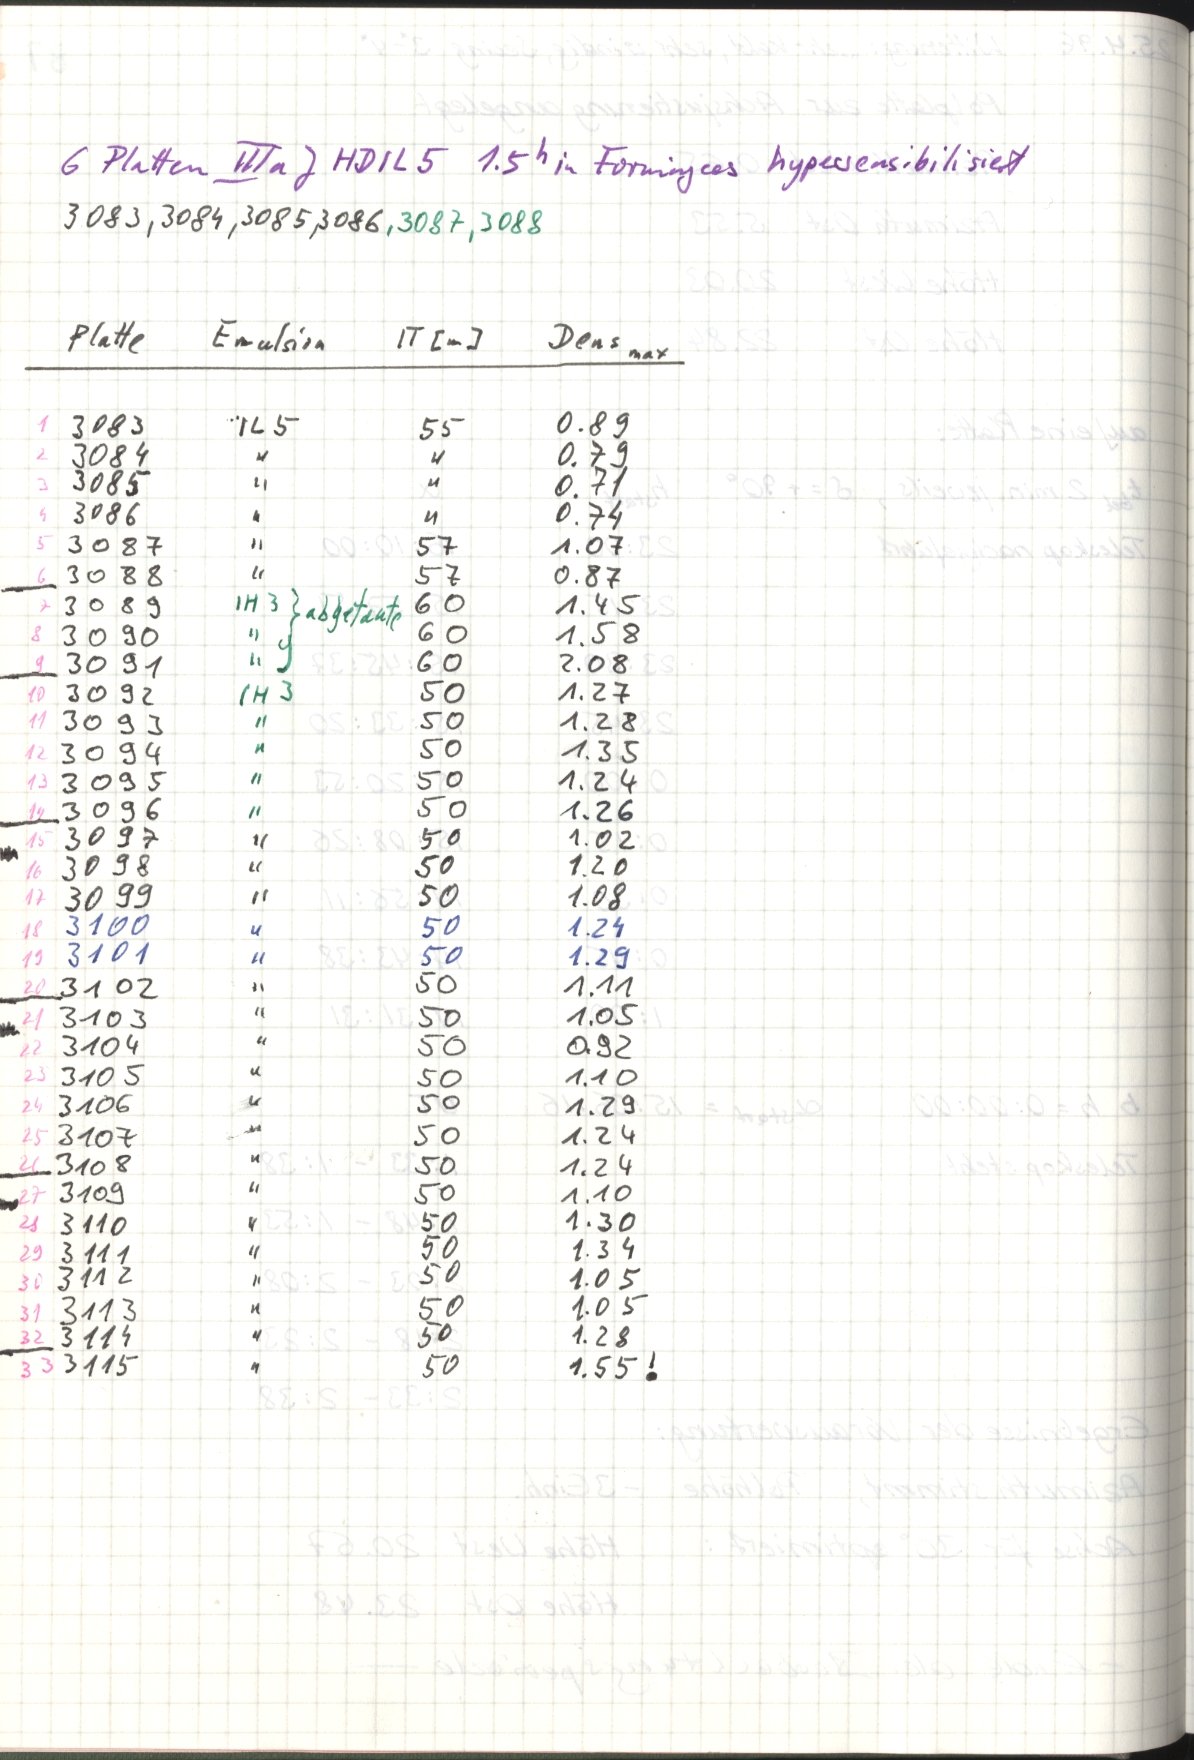 6 Platten IIIaJ HDIL5 1.5h in Formingas hypersensibilisiert
3083,3084,3085,3086,3087,3088
Platte Emulsion IT [m] Dens max
1 3083 IL5 55 0.89
2 3084 " " 0.79
3 3085 " " 0.71
4 3086 " " 0.74
5 3087 " 57 1.07
6 3088 " 57 0.87
7 3089 1H3 } 60 1.45
8 3090 " 60 1.58
9 3091 " 60 2.08
10 3092 1H3 50 1.27
11 3093 " 50 1.28
12 3094 " 50 1.35
13 3095 " 50 1.24
14 3096 " 50 1.26
15 3097 " 50 1.02
16 3098 " 50 1.20
17 3099 " 50 1.08
18 3100 " 50 1.24
19 3101 " 50 1.29
20 3102 " 50 1.11
21 3103 " 50 1.05
22 3104 " 50 0.92
23 3105 " 50 1.10
24 3106 " 50 1.29
25 3107 " 50 1.24
26 3108 " 50 1.24
27 3109 " 50 1.10
28 3110 " 50 1.30
29 3111 " 50 1.34
30 3112 " 50 1.05
31 3113 " 50 1.05
32 3114 " 50 1.28
33 3115 " 50 1.55!